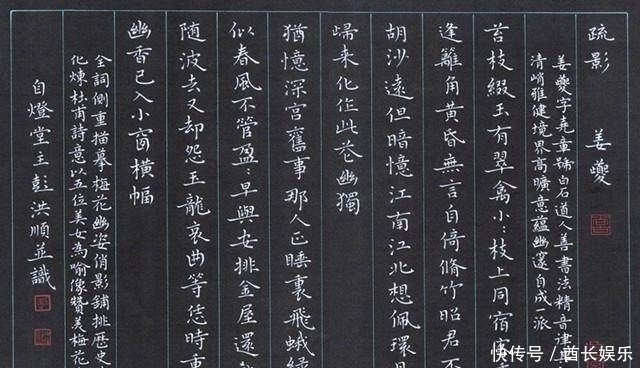 疏影 姜夔
姜夔字尧章號白石道人善書法精音律
清峭雅健境界高曠意蘊幽邃自成一派
苔枝綴玉有翠禽小〻枝上同宿客
逢籬角黄昏無言自倚脩竹昭君不
胡沙遠但暗憶江南江北想佩環
歸来化作此花幽獨
猶憶深宫舊事那人正睡裏飛蛾緑
似春風不管盈〻早與安排金屋還
随波去又却怨玉龍哀曲等恁時重
幽香已入小窗橫幅
全詞側重描摹梅花幽姿俏影鋪排歷史
化煉杜甫詩意以五位美女為喻像贊美梅花
自燈堂主彭洪順並識
快传号／酋长娱乐